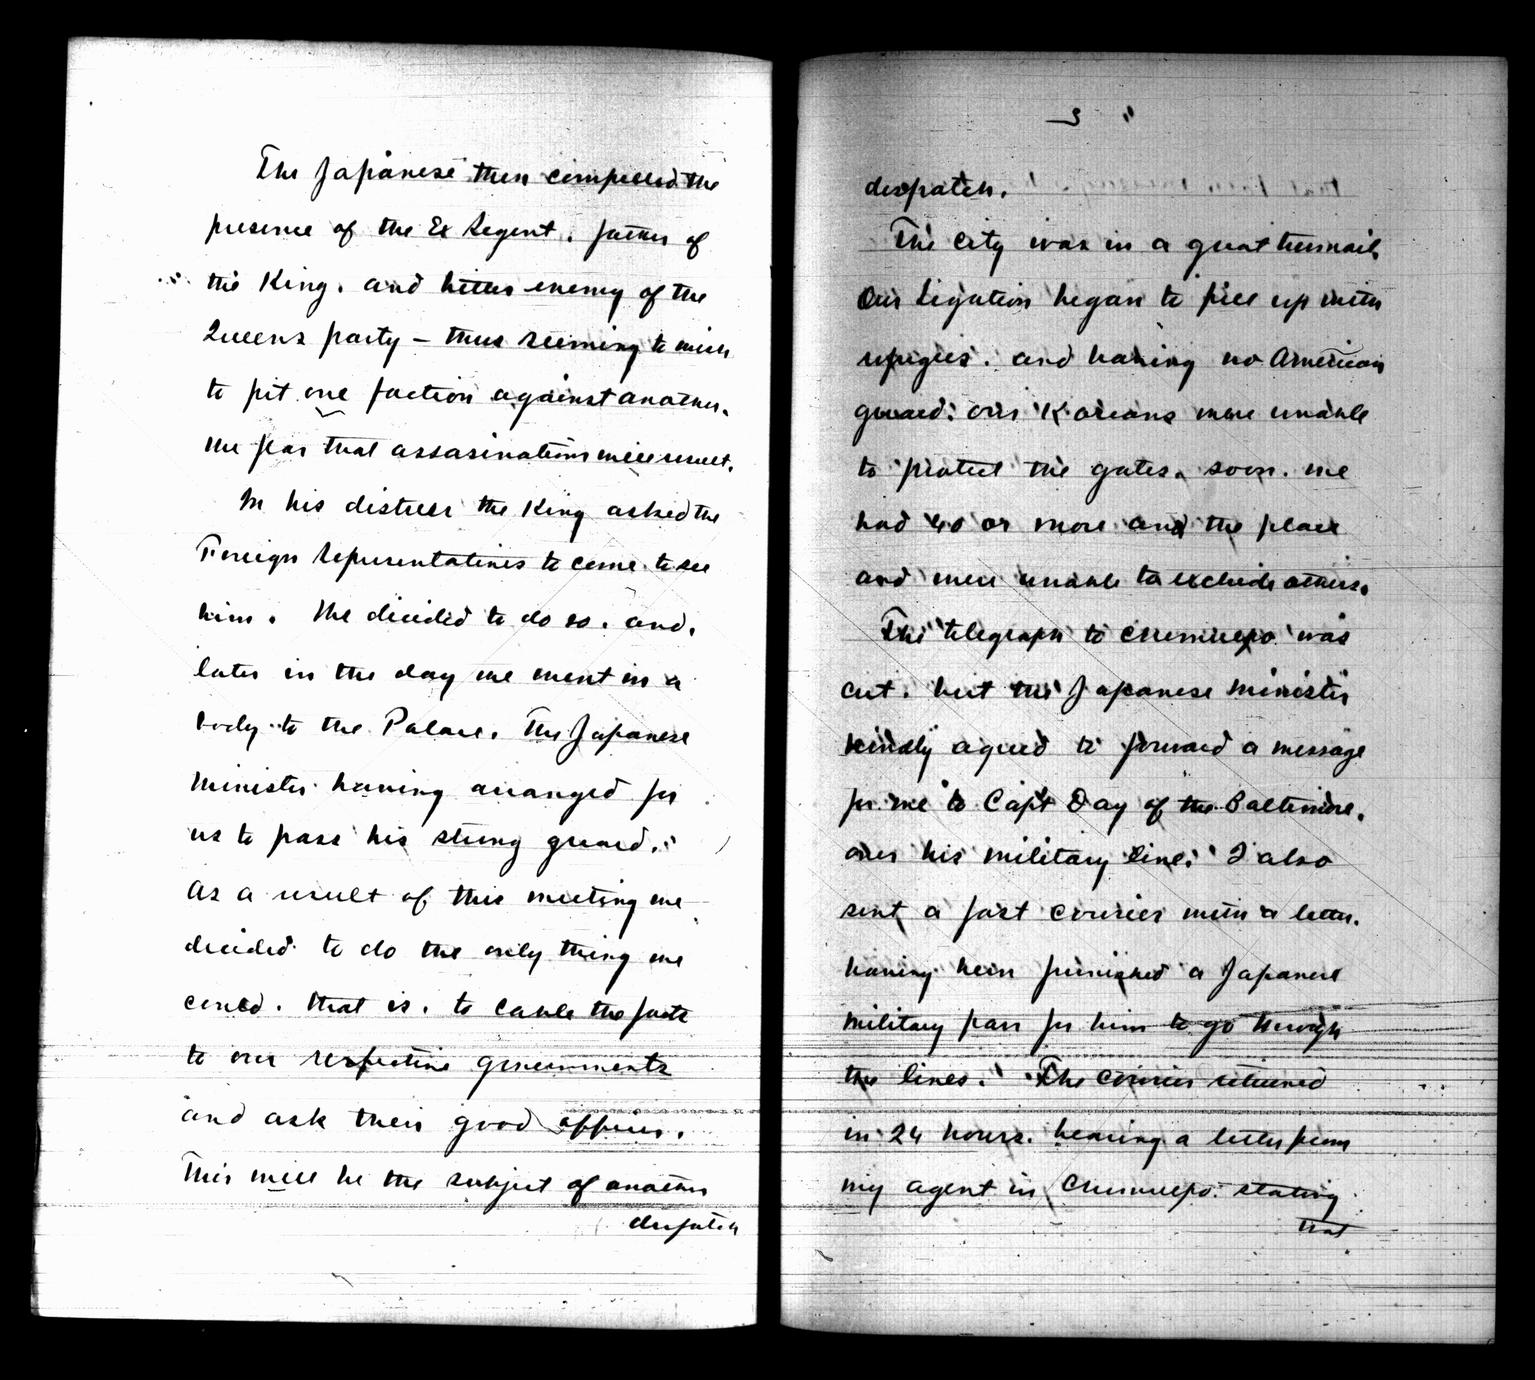 The Japanese then compelled the
presence of the Ex Regent, father of
the King, and bitter enemy of the
Queens party – thus seeming to wish
to pit one faction against another.
We fear that assasinations will result.
In his distress the King asked the
Foreign Representatives to come to see
him. We decided to do so, and,
later in the day we went in a
body to the Palace. The Japanese
Minister having arranged for
us to pass his strong guard.
As a result of this meeting we
decided to do the only thing we
could, that is, to cable the facts
to our respective governments
and ask their good offices.
This will be the subject of another
despatch
3
despatch.
The city was in a great turmoil.
Our Legation began to fill up with
refugees, and having no American
guard, our Koreans were unable
to protect the gates, soon we
had 40 or more and the place
and were unable to exclude others.
The telegraph to Chemulpo was
cut, but the Japanese Minister
kindly agreed to forward a message
for me to Capt Day of the Baltimore,
over his military line. I also
sent a fast courier with a letter,
having been furnished a Japanese
military pass for him to go through
the lines. The courier returned
in 24 hours, bearing a letter from
my agent in Chemulpo, stating
that